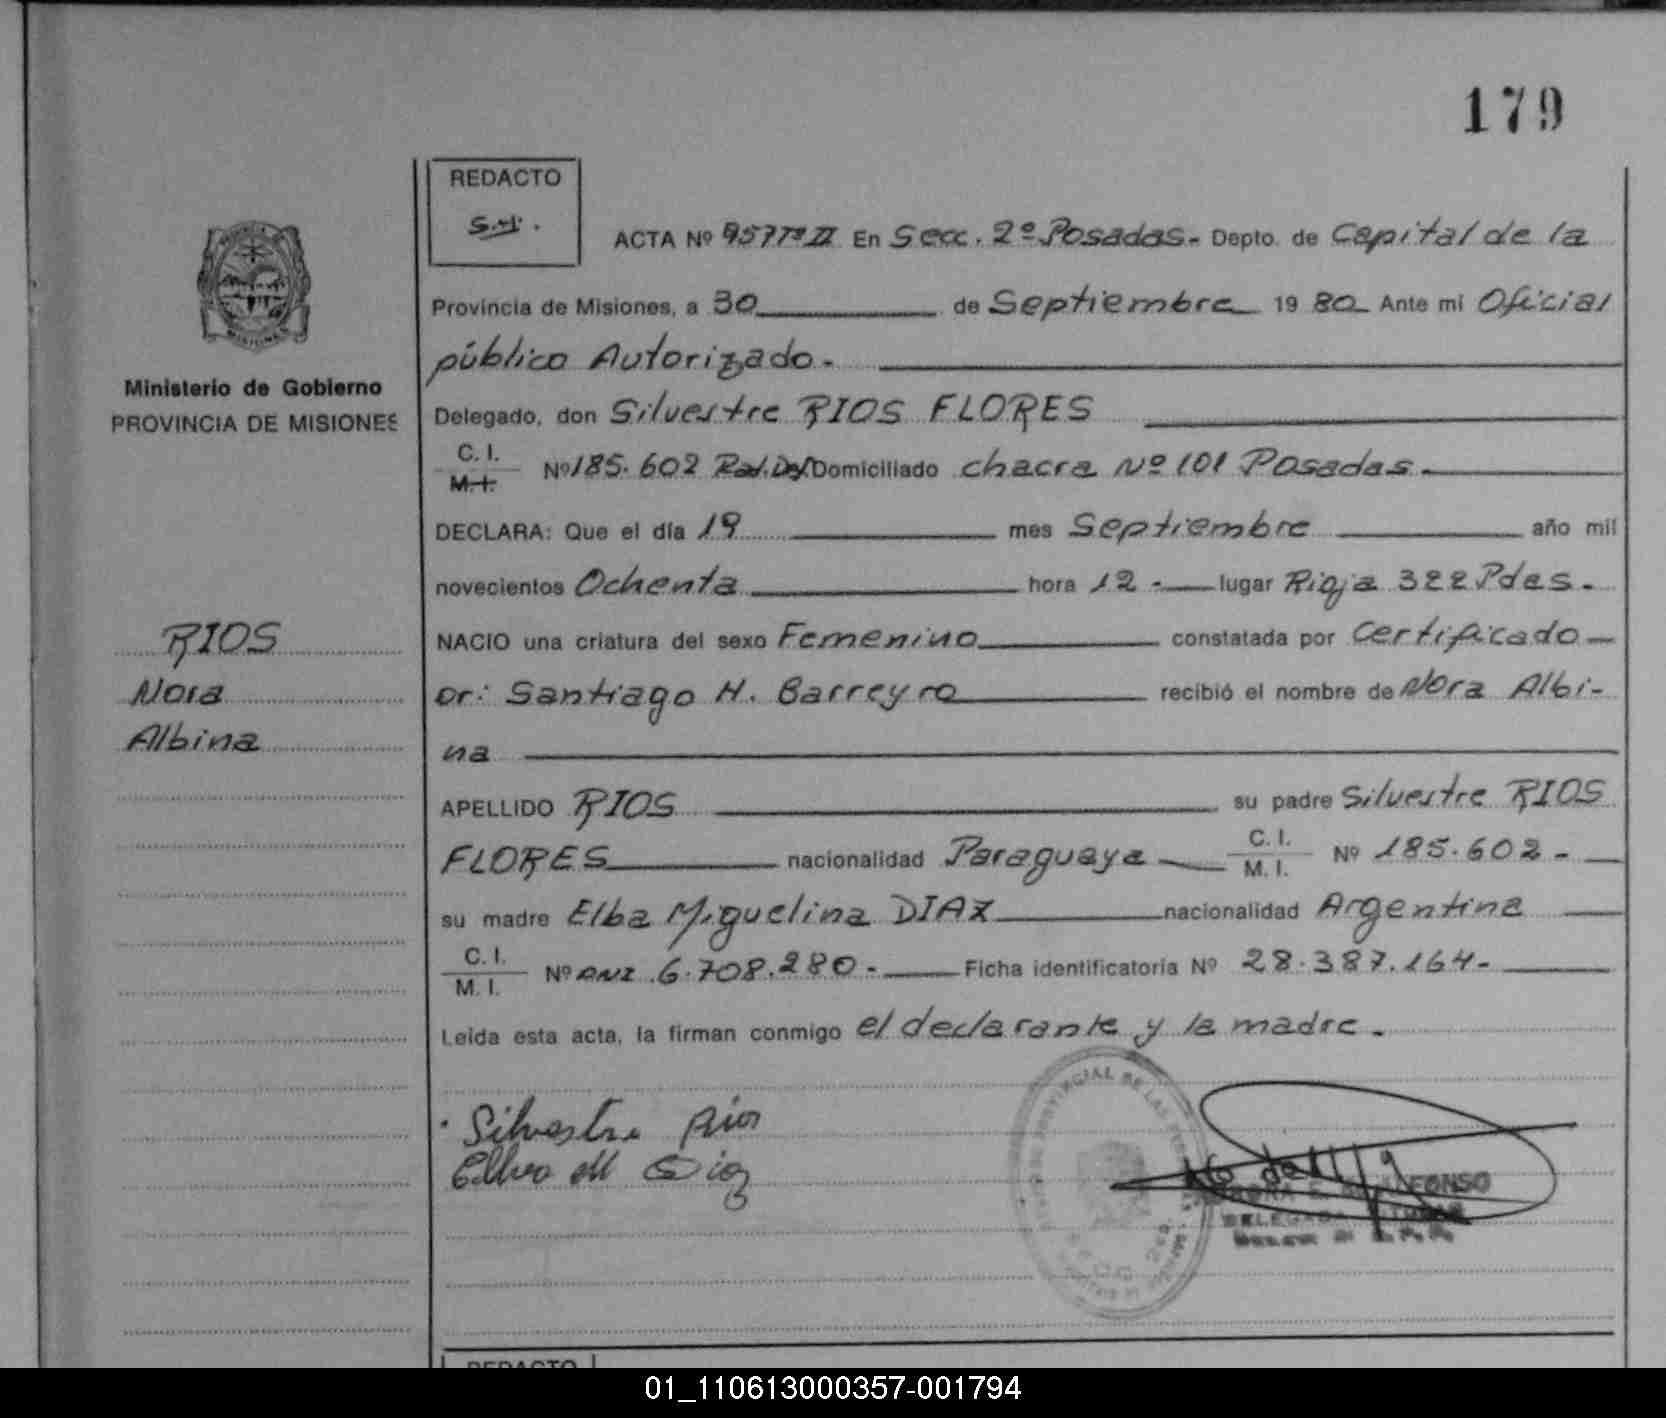 179
REDACTO
ACTA Nº 957 Tº II En Secc. 2º Posadas.- Depto. de Capital de la
Provincia de Misiones, a 30 de Septiembre 19 80 Ante mi Oficial
público Autorizado.-
Ministerio de Gobierno
PROVINCIA DE MISIONES
Delegado, don Silvestre RIOS FLORES
C. I.
M. I.
Nº 185.602 Domiciliado chacra Nº 101 Posadas
DECLARA: Que el día 19 mes Septiembre año mil
novecientos Ochenta hora 12.- lugar Rioja 322 Pdas.-
RIOS
Nora
Albina
NACIO una criatura del sexo Femenino constatada por Certificado
Dr: Santiago H. Barreyro recibió el nombre de Nora Albi-
na
APELLIDO RIOS su padre Silvestre RIOS
FLORES nacionalidad Paraguaya C. I. M. I. Nº 185.602.-
su madre Elba Miguelina DIAZ nacionalidad Argentina
C. I. M. I. Nº 6.708.280.- Ficha identificatoria Nº 28.387.164.-
Leída esta acta, la firman conmigo el declarante y la madre.
Silvestre Rios
Elba M Diaz
REDACTO
01_110613000357-001794